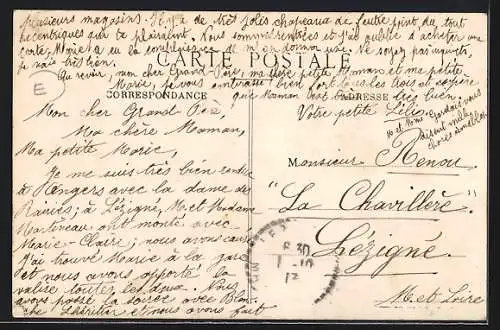 plusieurs magasins. Il y a de très jolis chapeaux de feutre point du tout
excentriques qui te plairaient. Nous sommes rentrées et j'ai oublié d'acheter une
carte, Marie a eu la complaisance de m'en donner une. Ne soyez pas inquiets,
je vais très bien.
Au revoir, mon cher Grand-Père, ma chère petite Maman et ma petite
Marie, je vous embrasse bien fort tous les trois et espère
que Maman va bien.
CARTE POSTALE
CORRESPONDANCE
ADRESSE
Votre petite Lili
M et Mme Gordais vous
disent mille
choses aimables
E
Mon cher Grand-Père,
Ma chère Maman,
Ma petite Marie,
Je me suis très bien
à Angers avec la dame de
à Lézigné, M. et Madame
Martineau ont monté avec
Marie-Claire; nous avons causé
J'ai trouvé Marie à la gare
et nous avons apporté la
valise toutes les deux. Nous
avons passé la soirée avec
et nous avons fait
Monsieur Renou
"La Chavillère"
Lézigné.
M. et Loire